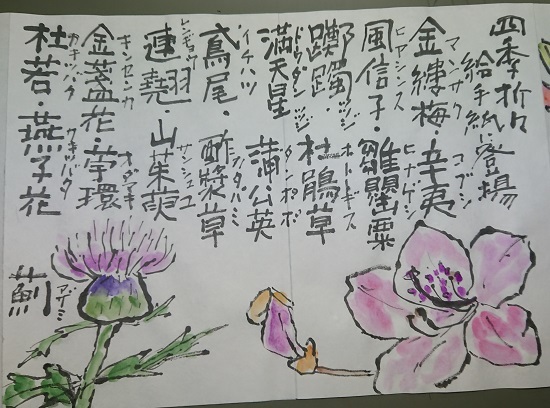 四季折々
給手紙に登場
マンサク コブシ
金縷梅・辛夷
ヒアシンス ヒナゲシ
風信子・雛罌粟
ホトトギス
躑躅 杜鵑草
ドウダンツツジ タンポポ
満天星 蒲公英
イチハツ カタバミ
鳶尾・酢漿草
レンギョウ サンシュユ
連翹・山茱萸
キンセンカ オダマキ
金盞花・苧環
カキツバタ カキツバタ
杜若・燕子花
アザミ
薊